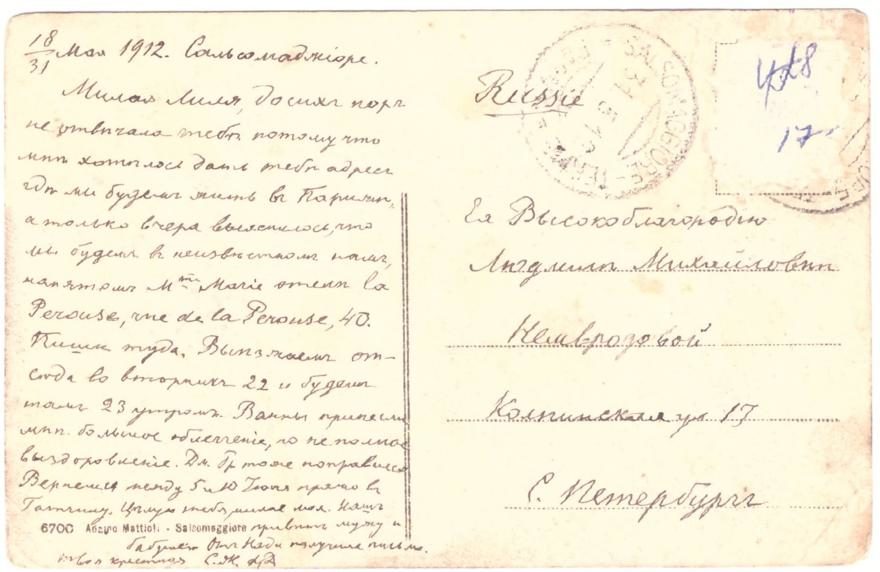 18/31 Мая 1912. Сальсомаджiоре.
Милая Лиля, до сихъ поръ
не отвѣчала тебѣ потому что
мнѣ хотѣлось дать тебѣ адресъ
гдѣ мы будемъ жить въ Парижѣ,
а только вчера выяснилось, что
мы будемъ въ неизвѣстномъ намъ,
нанятомъ Mme Marie отелѣ la
Perouse, rue de la Perouse, 40.
Пиши туда. Выѣзжаемъ от-
сюда во вторникъ 22 и будемъ
тамъ 23 утромъ. Ванны принесли
мнѣ большое облегченiе, но не полное
выздоровленiе. Дм. Гр. тоже поправился
Вернемся между 5 и 10 Iюня прямо въ
Гатчину. Цѣлую тебя милая моя. Нашъ
привѣтъ мужу и
бабушкѣ. Отъ Нади получила письмо.
твоя крестная С.
6700 Mattioli - Salsomaggiore
Russie
SALSOMAGGIORE
31
17
Ея Высокоблагородiю
Людмилѣ Михайловнѣ
Немвродовой
Колпинская ул 17
С. Петербургъ